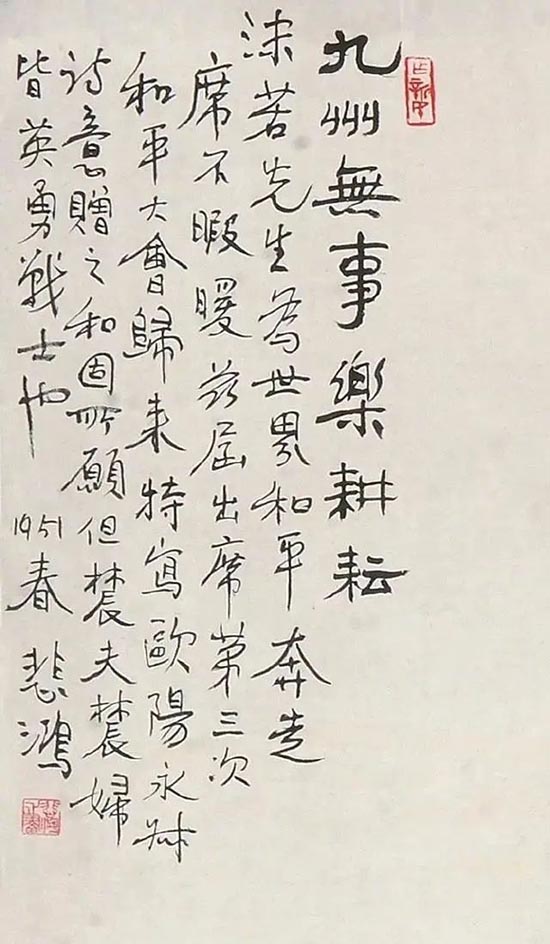 九州無事樂耕耘
沫若先生為世界和平奔走
席不暇暖茲屆出席第三次
和平大會歸来特寫歐陽永叔
詩意贈之和固所願但辳夫辳婦
皆英勇戰士也 1951春 悲鴻